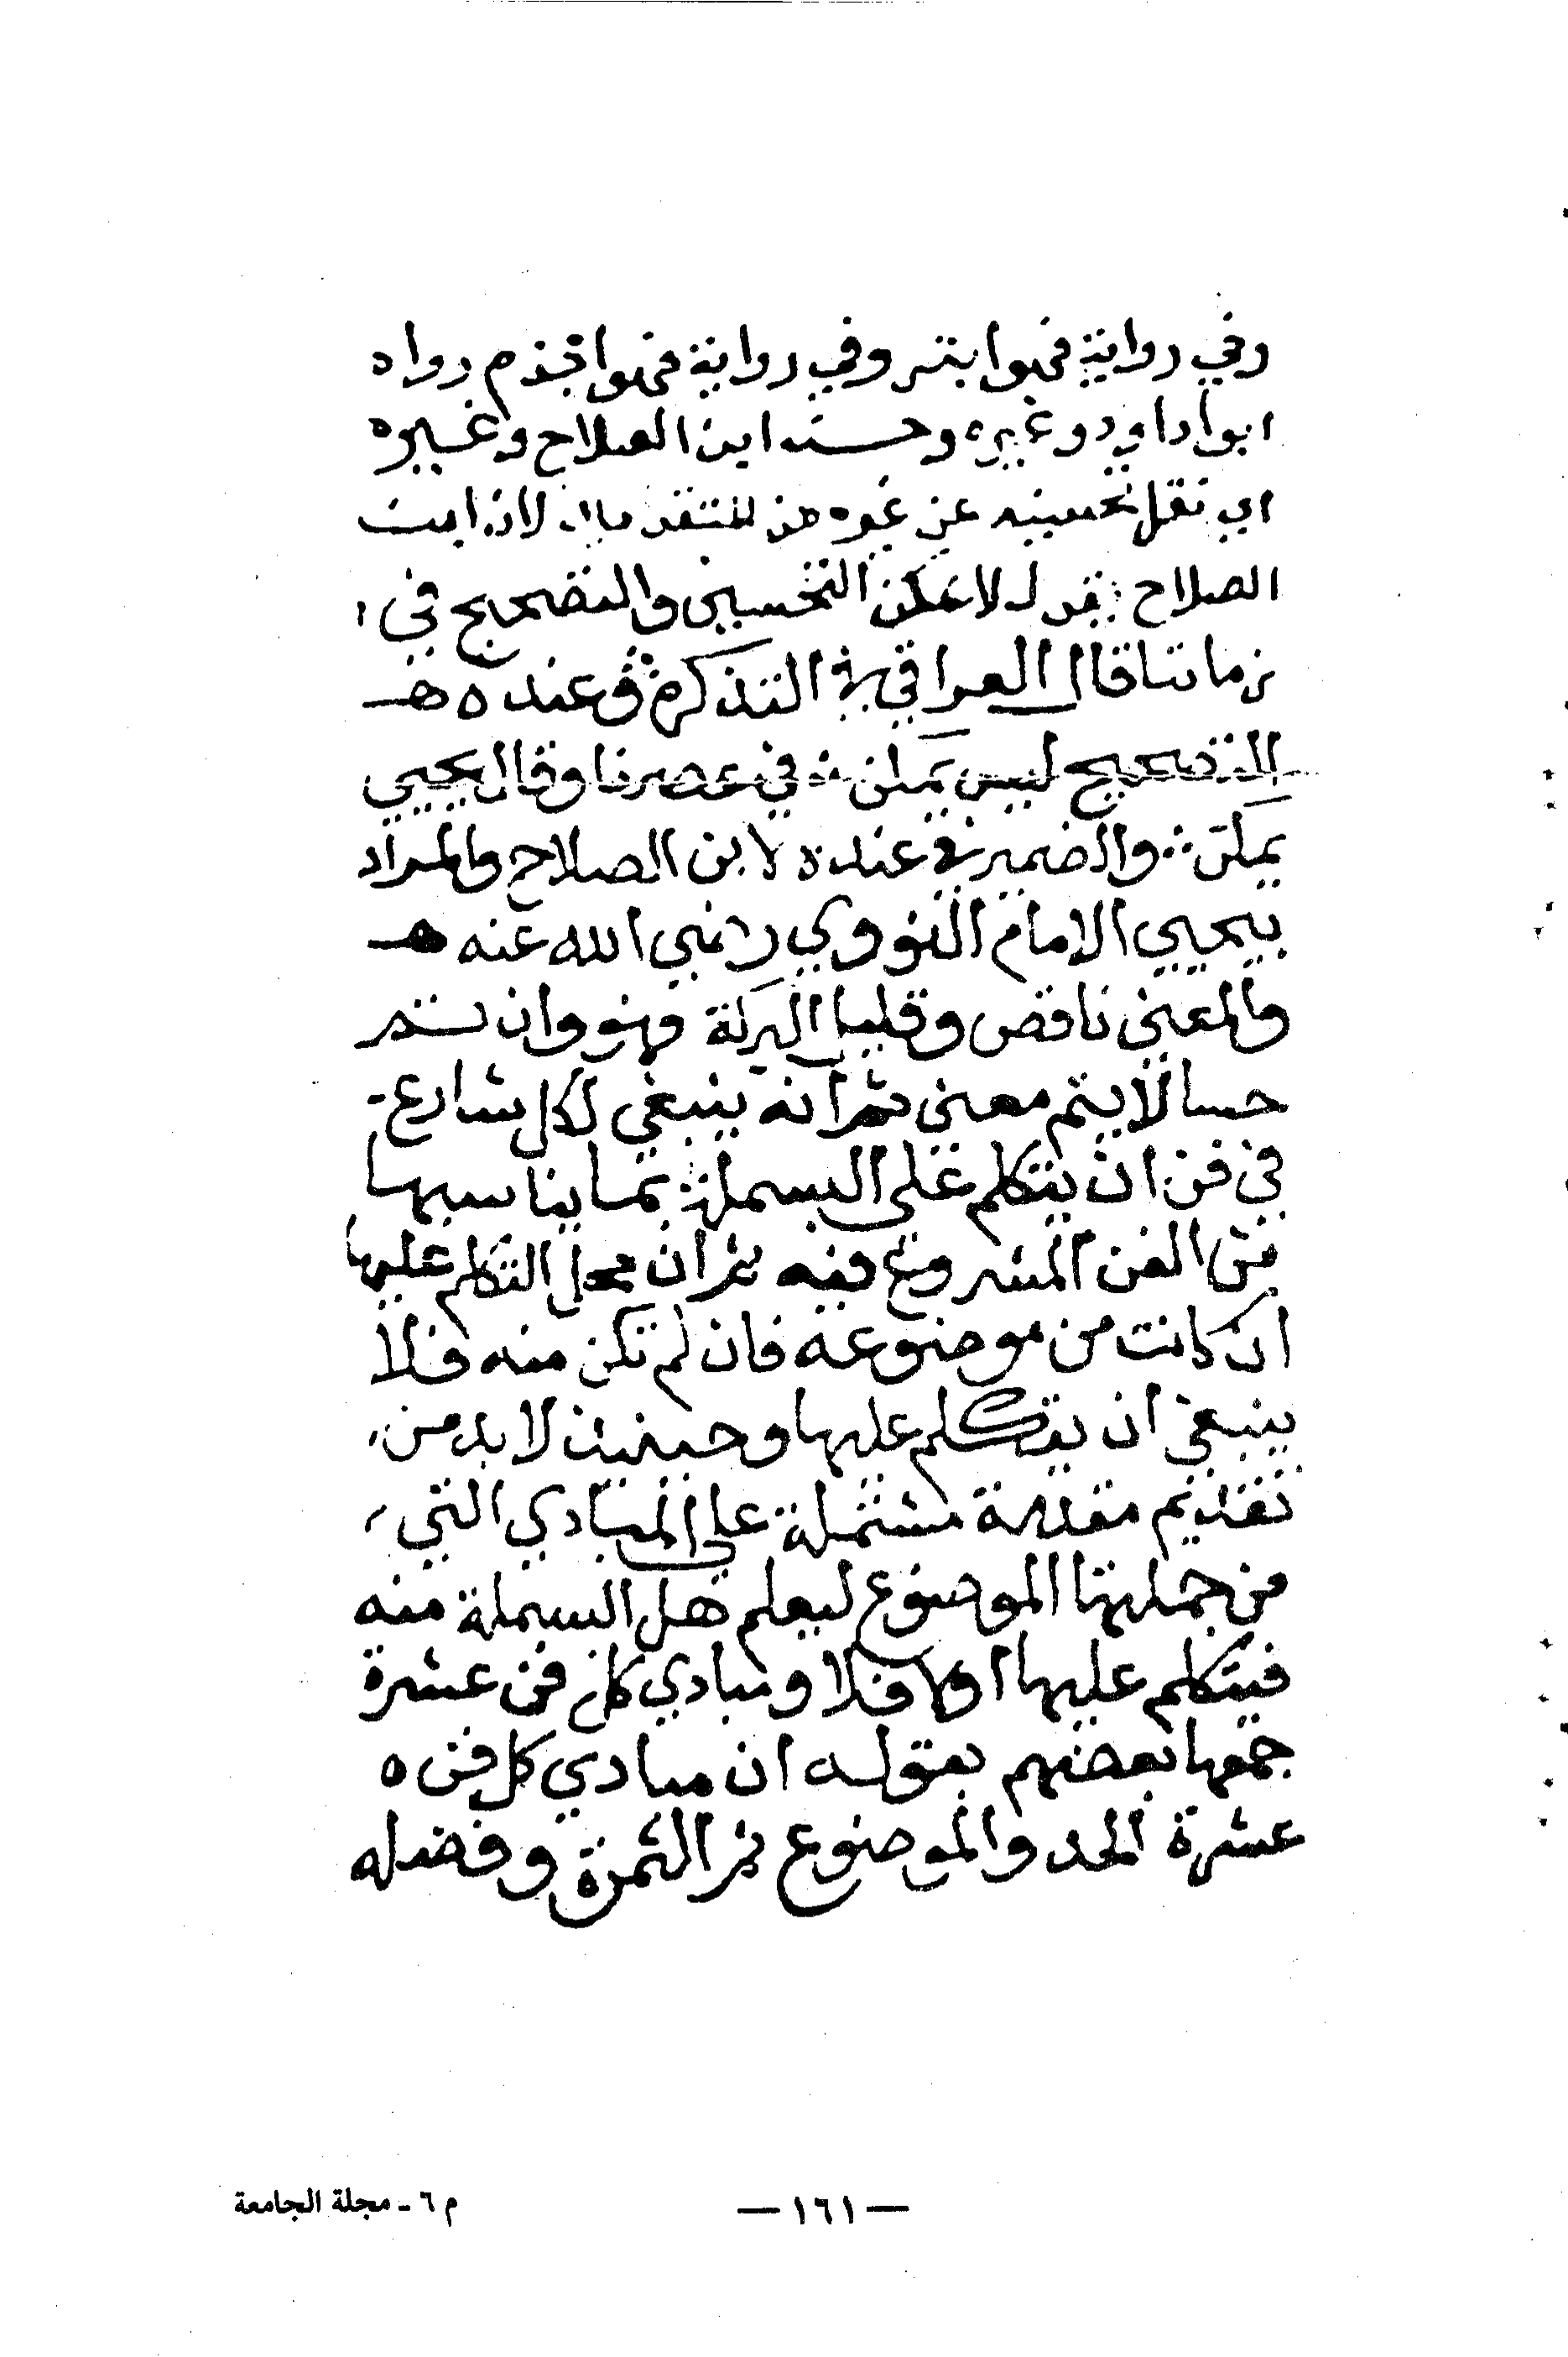 وفي رواية فهوا بتر وفي رواية فهوا جذم رواه
ابوا داود وغيره وحسنه ابن الصلاح وغيره
اي نقل تحسينه عن غيره من المتقدمين لان ابن
الصلاح يقول لا يمكن التحسين والتصحيح في
زماننا قال العراقي في التذكرة وعنده
التصحيح ليس يمكن في عصرنا وقال يحيي
يمكن والضمير في عنده لابن الصلاح والمراد
بيحيي الامام النووي رضي الله عنه
والمعني ناقص وقليل البركة فهو وان تم
حسا لا يتم معني ثم انه ينبغي لكل شارع
في فن ان يتكلم علي البسملة بما يناسبها
من الفن المشروع فيه ثم ان محل التكلم عليها
ان كانت من موضوعه فان لم تكن منه فلا
ينبغي ان يتكلم عليها وحينئذ لا بد من
تقديم مقدمة مشتملة علي المبادي التي
من جملتها الموضوع ليعلم هل البسملة منه
فيتكلم عليها اولا فلا ومبادي كل فن عشرة
جمعها بعضهم بقوله ان مبادي كل فن ه
عشرة الحد والموضوع ثم الثمرة وفضله
م ٦ - مجلة الجامعة
— ١٦١ —